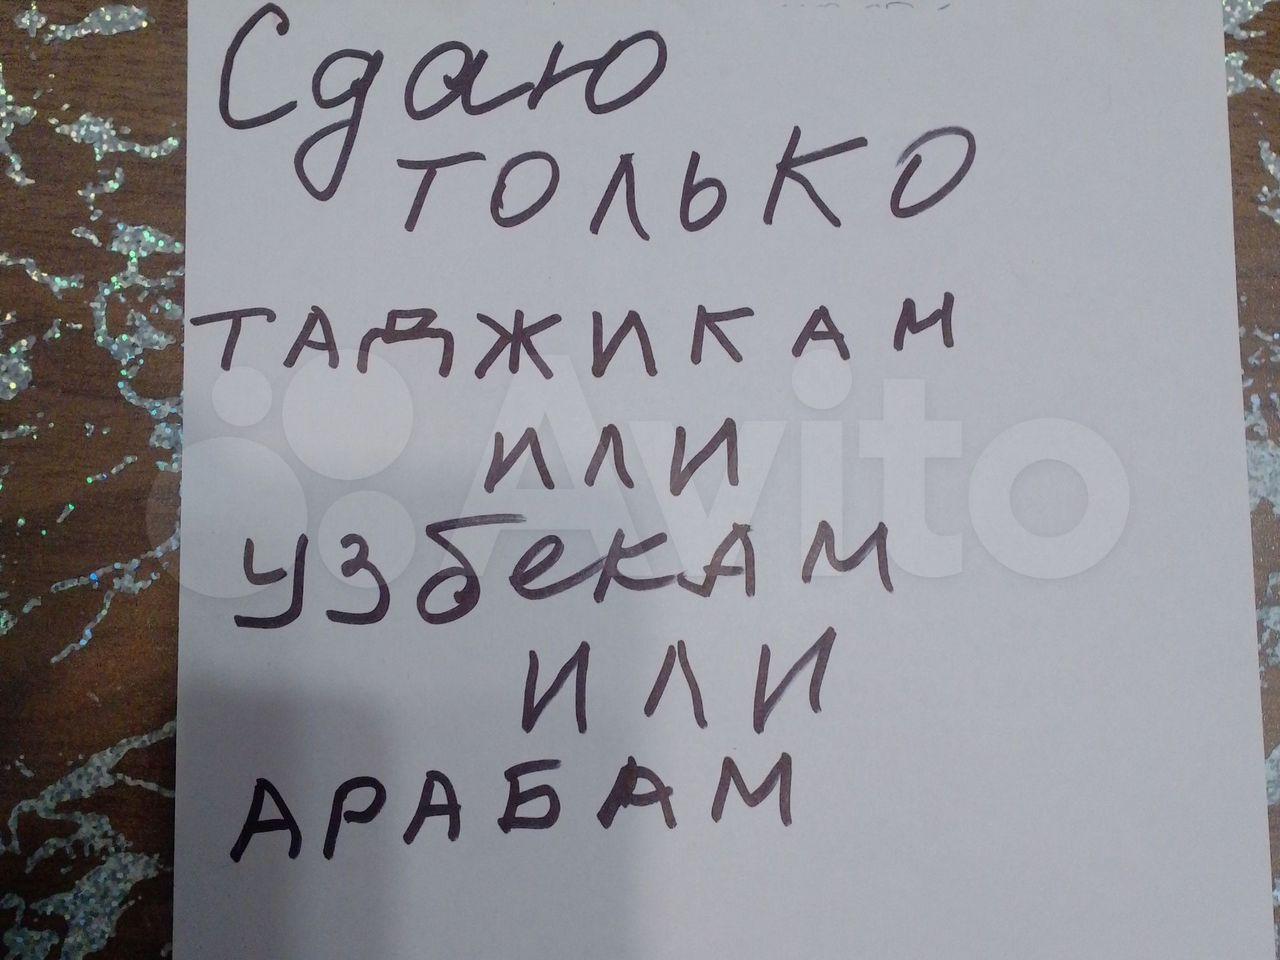 Сдаю
только
ТАДЖИКАМ
ИЛИ
УЗбекАМ
ИЛИ
АРАБАМ
Avito